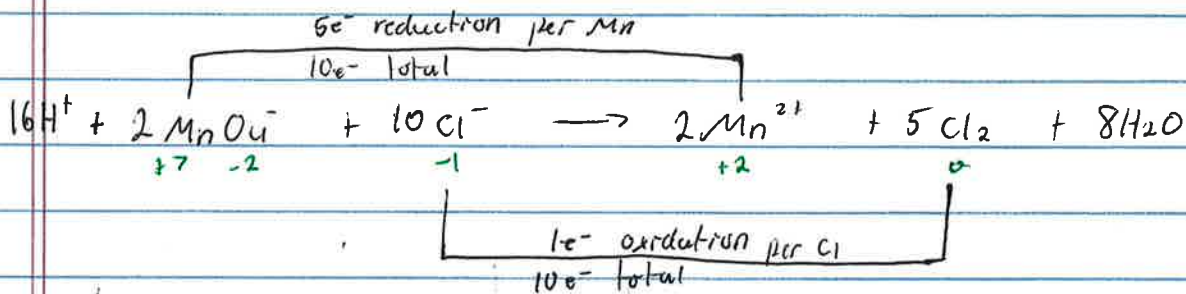 5e⁻ reduction per Mn
10e⁻ total
16H⁺ + 2MnO4⁻ + 10Cl⁻ → 2Mn²⁺ + 5Cl₂ + 8H₂O
+7 -2 -1 +2 0
1e⁻ oxidation per Cl
10e⁻ total